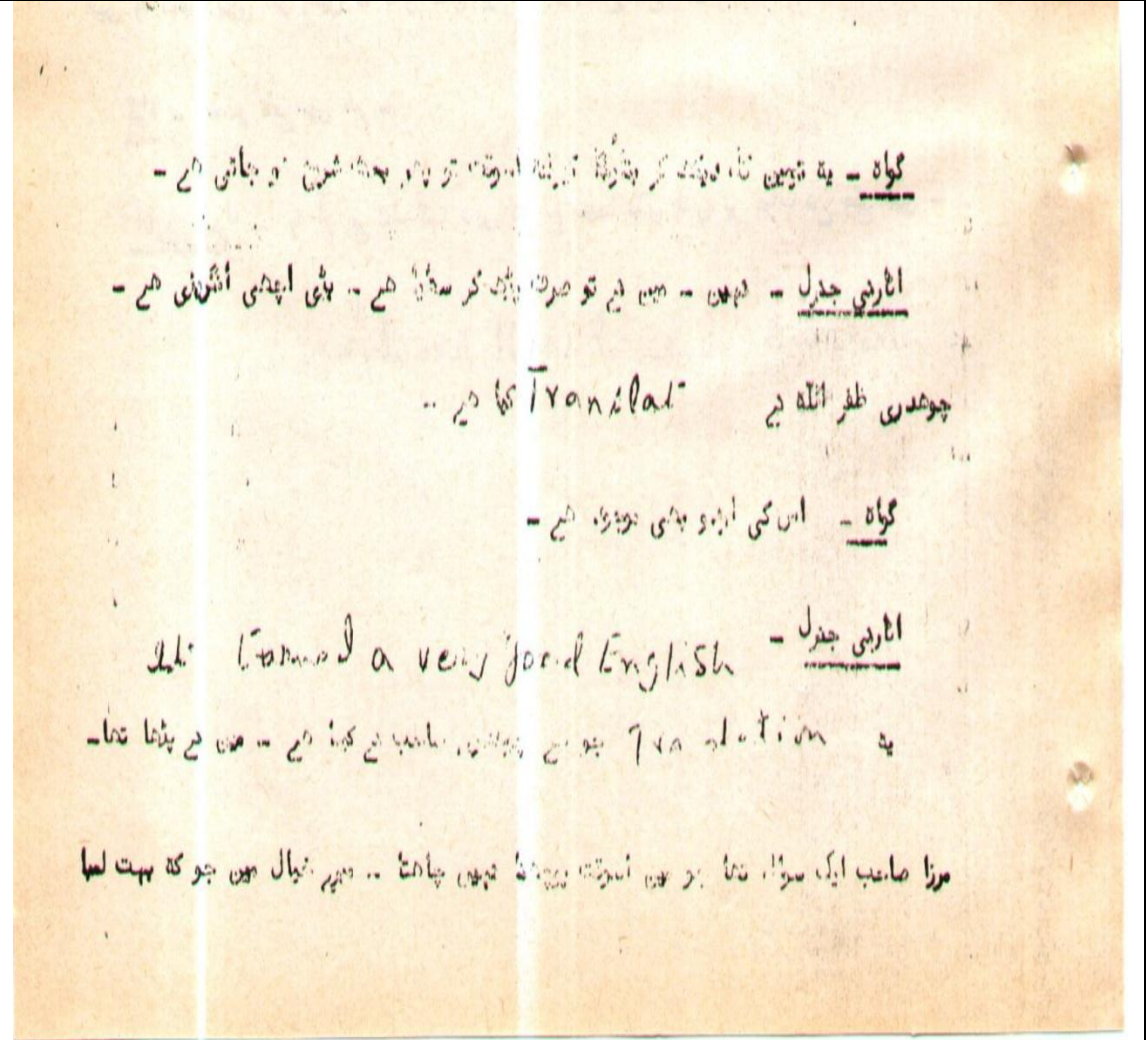 گواہ ـ یہ نہیں ، دیکھ کر تو پھر بحث شروع ہو جاتی ہے ـ
اٹارنی جنرل ـ نہیں ـ میں نے تو صرف پڑھ کر سنایا ہے ـ بڑی اچھی انگریزی ہے ـ
چوہدری ظفر اللہ نے Translat کیا ہے ..
گواہ ـ اس کی اردو بھی ہے ـ
اٹارنی جنرل ـ a very good English
یہ Translation جو ہے صاحب نے کیا ہے ـ میں نے پڑھا تھا ـ
مرزا صاحب ایک سوال تھا جو میں اسوقت پوچھنا نہیں چاہتا .. میرے خیال میں جو کہ بہت لمبا